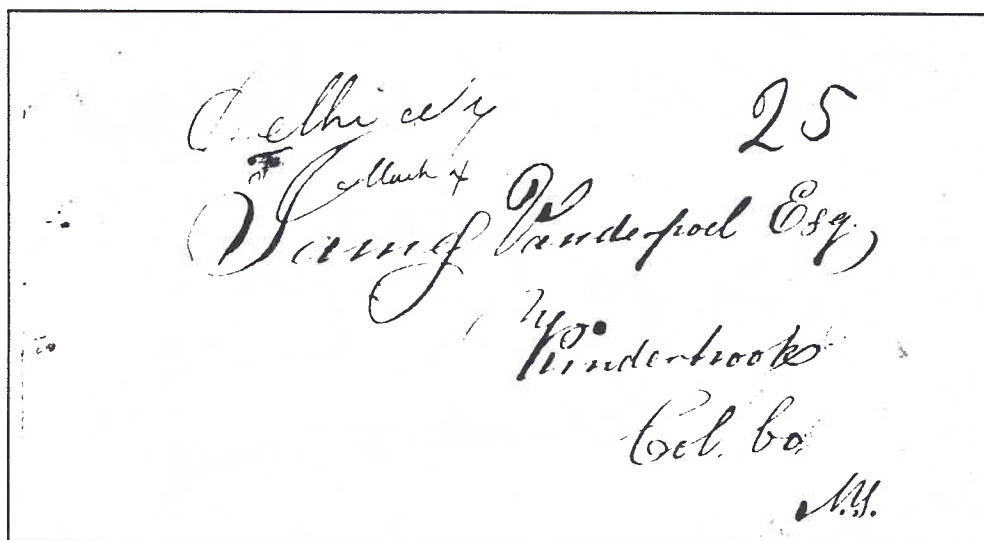 Delhi NY 25
March 4
James Vanderpoel Esq.,
Kinderhook
Col. Co.
N.Y.